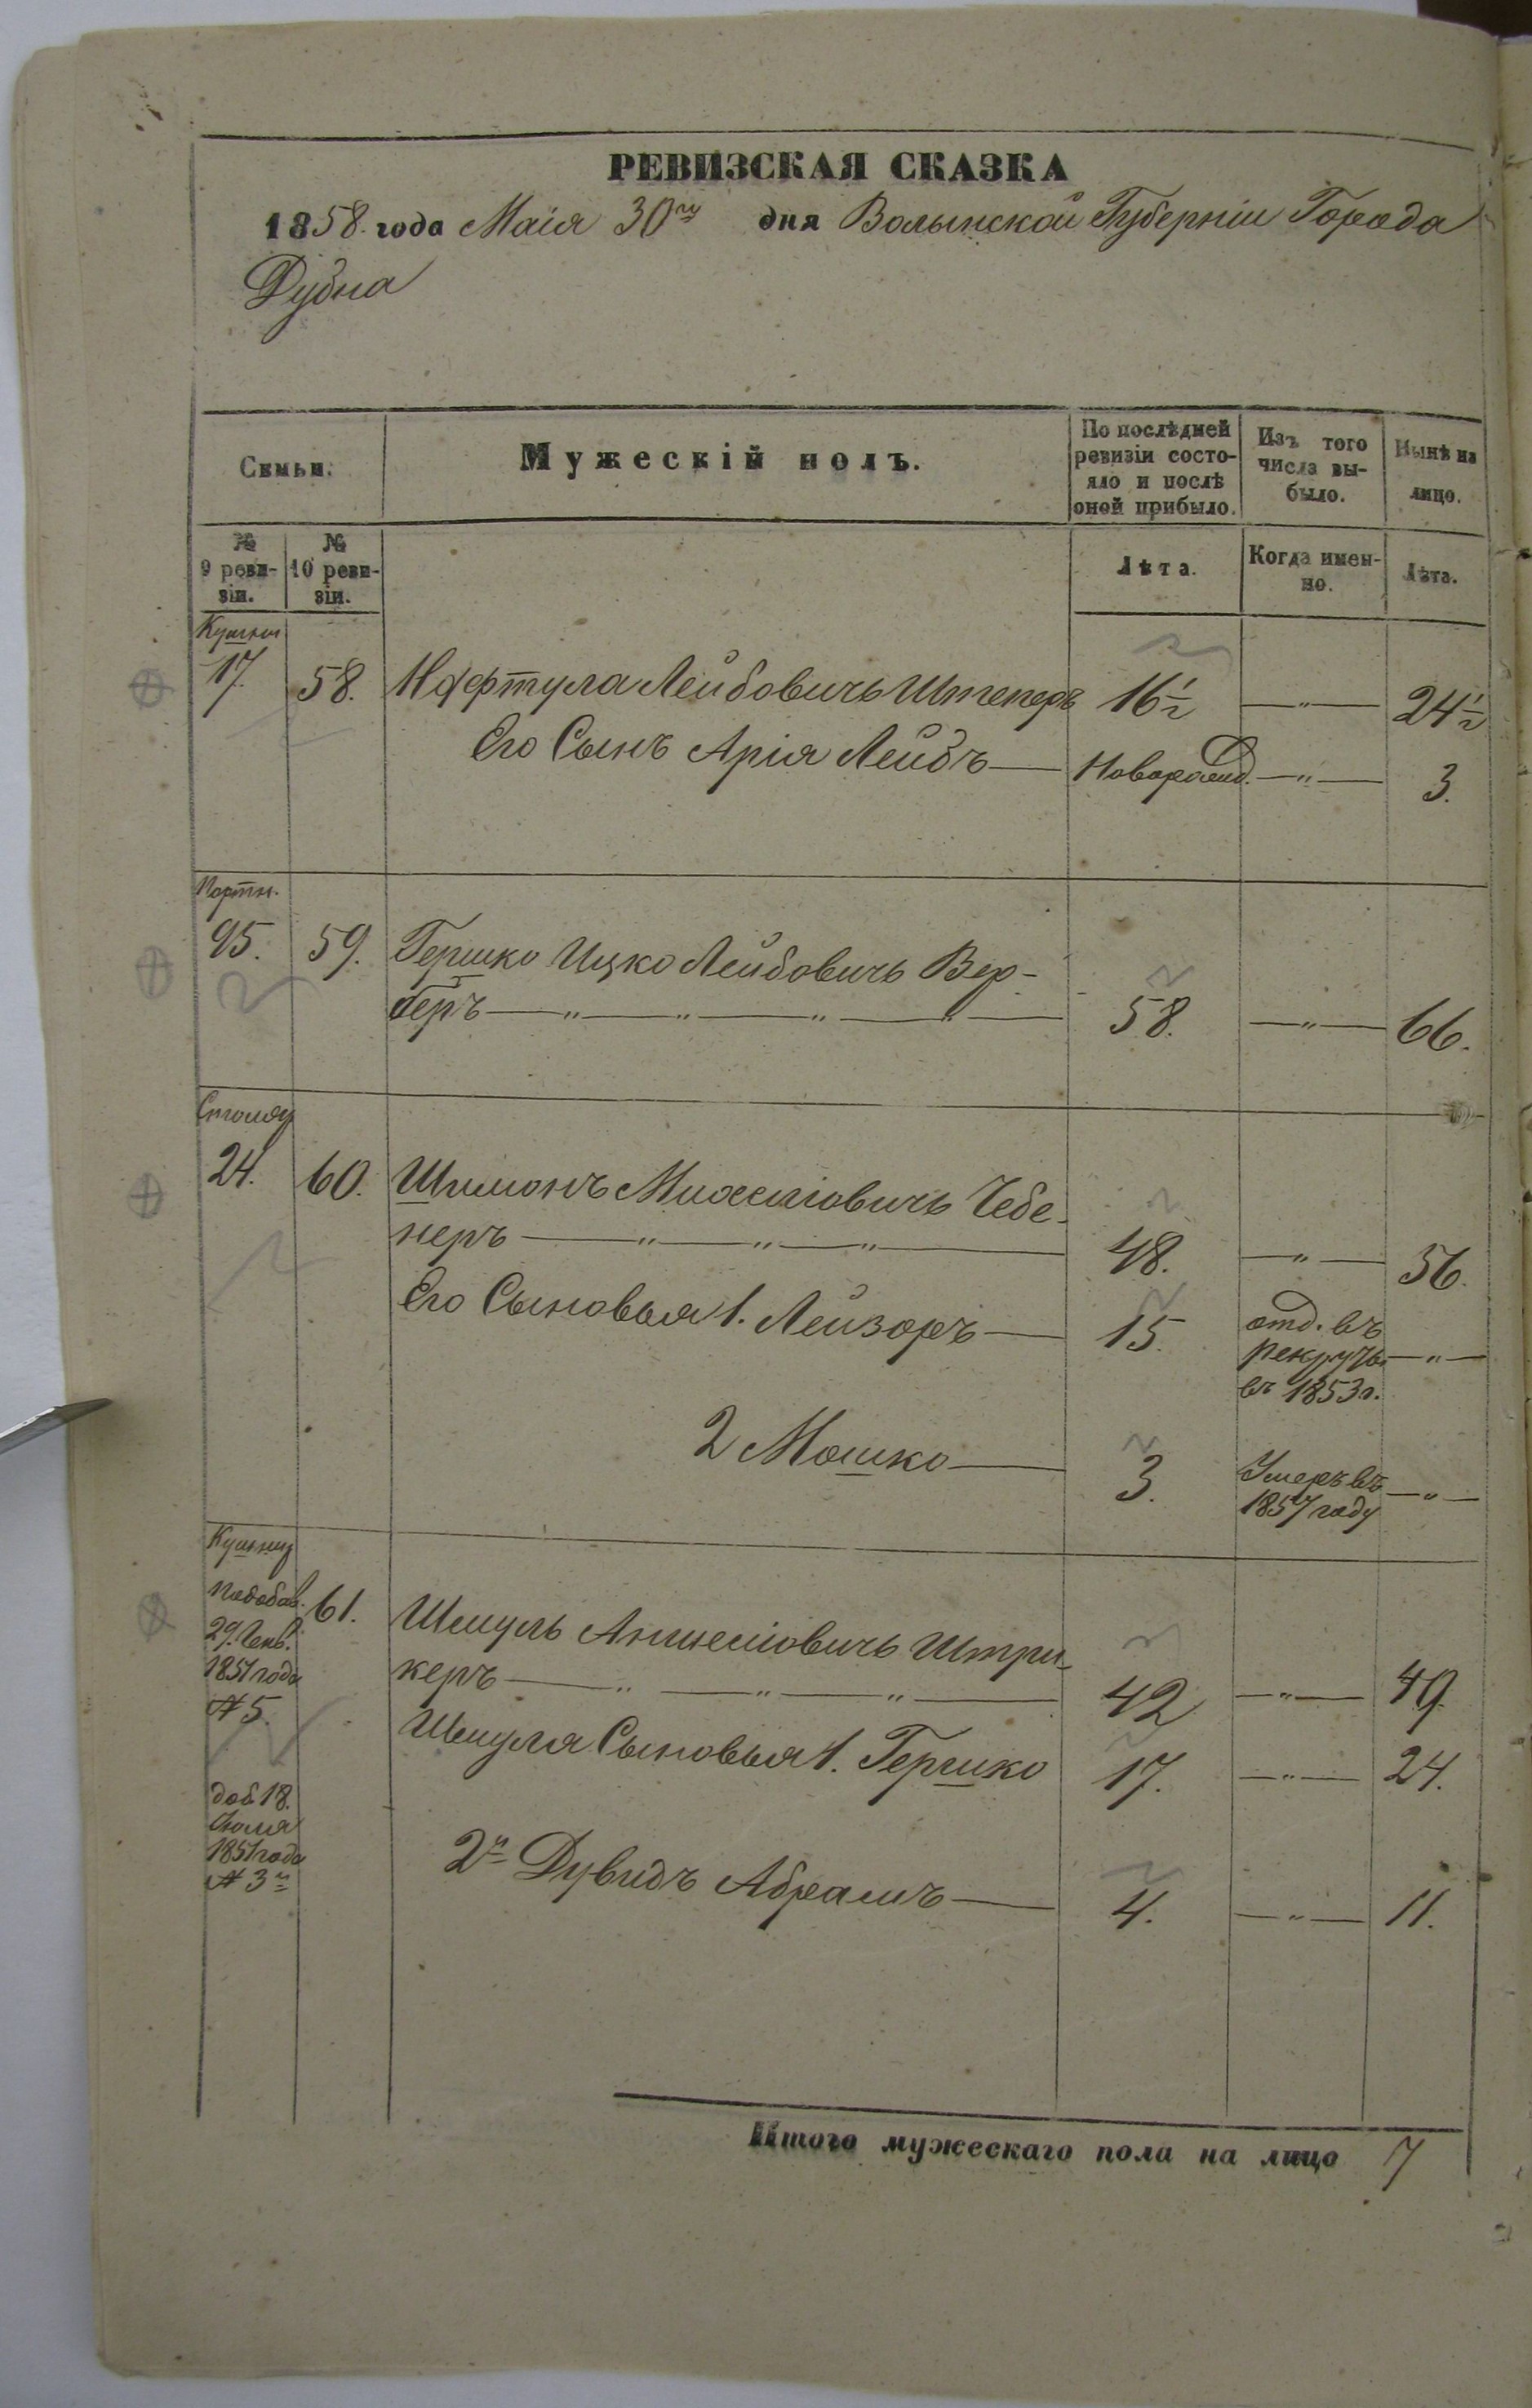 РЕВИЗСКАЯ СКАЗКА
1858 года Маія 30го дня Волынской Губерніи Города
Дубна
Семьи.
Мужескій полъ.
По послѣдней ревизіи состояло и послѣ оной прибыло.
Изъ того числа выбыло.
Нынѣ на лицо.
№ 9 ревизіи.
№ 10 ревизіи.
Лѣта.
Когда именно.
Лѣта.
17. 58. Нафтула Лейбовичъ Штеперъ 16½ —„— 24½
Его Сынъ Арія Лейбъ — Новорожд. —„— 3.
Портн.
95. 59. Гершко Ицко Лейбовичъ Вер-
беръ —„—„—„—„— 58. —„— 66.
24. 60. Шимонъ Михелiовичъ Чебе-
неръ —„—„—„— 48. —„— 56.
Его Сыновья 1. Лейзоръ — 15. отд. въ —„—
рекруты
въ 1853 г.
2 Мошко — 3. Умеръ въ —„—
1857 году
61. Шмуль Аншелiовичъ Штри-
1851 года
керъ —„—„—„— 42 —„— 49.
№ 5.
Шмуля Сыновья 1. Гершко 17. —„— 24.
доб 18.
Іюля
1851 года
№ 3й
2й Дувидъ Абрамъ — 4. —„— 11.
Итого мужескаго пола на лицо 7